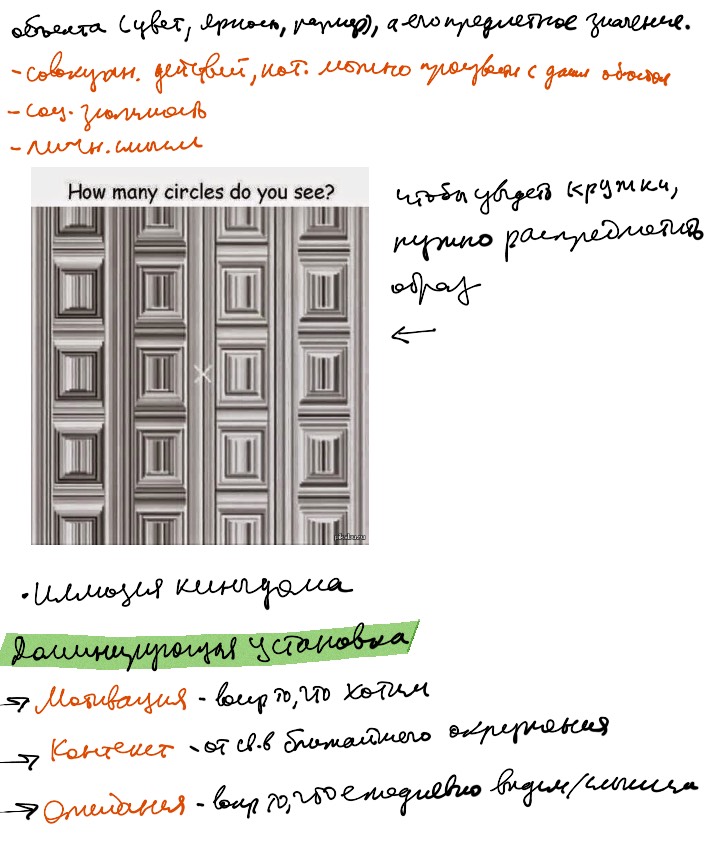 объекта (цвет, яркость, размер), а его предметное значение.
- совокупн. действий, кот. можно произвести с данн объектом
- соц. значимость
- личн. смысл
How many circles do you see?
чтобы увидеть кружки,
нужно распредметить
образ
←
• иллюзия киньдома
Доминирующая установка
→ Мотивация - воспр то, что хотим
→ Контекст - от св-в ближайшего окружения
→ Ожидания - воспр то, что ежедневно видим/слышим